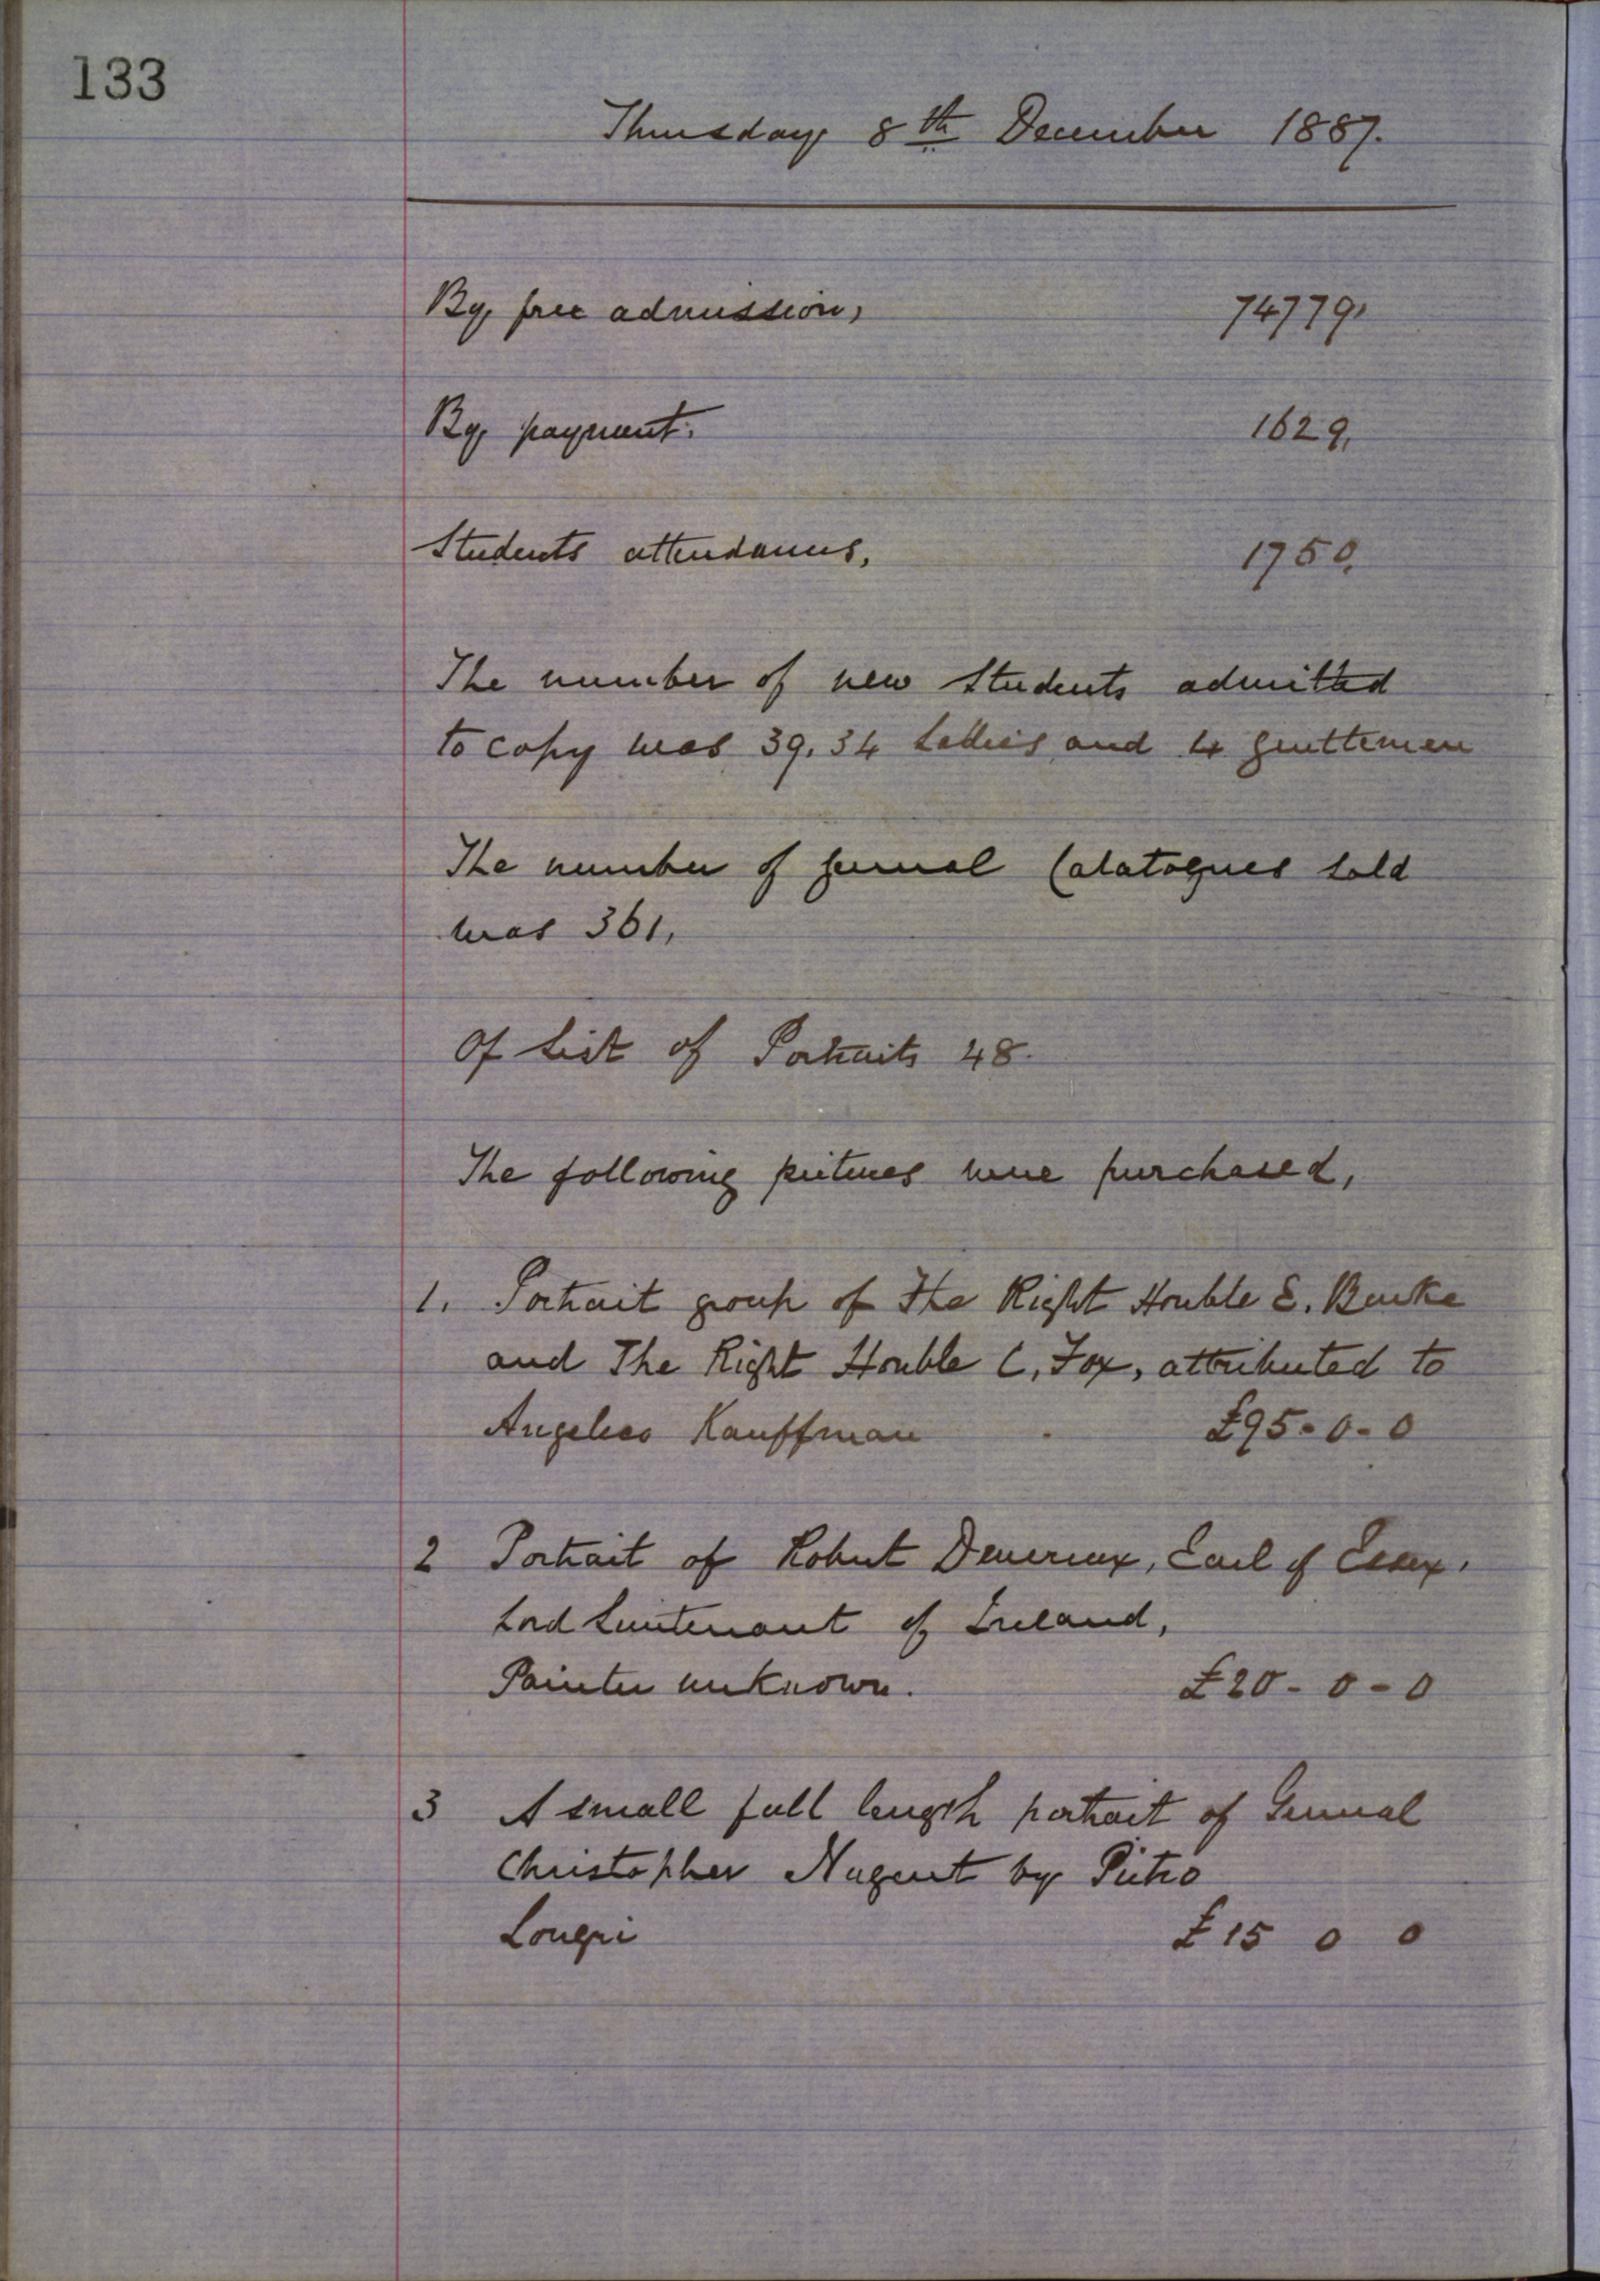 133
Thursday 8th December 1887.
By free admission, 74779,
By payment. 1629,
Students attendances, 1750,
The number of new Students admitted
to copy was 39, 34 Ladies and 4 gentlemen
The number of general Catatogues sold
was 361,
Of List of Portraits 48.
The following pictures were purchased,
1. Portrait group of The Right Honble E. Burke
and The Right Honble C, Fox, attributed to
Angelica Kauffman £95-0-0
2 Portrait of Robert Devereux, Earl of Essex,
Lord Lieutenant of Ireland,
Painter unknown. £20-0-0
3 A small full length portrait of General
Christopher Nugent by Pietro
Longhi £15 0 0